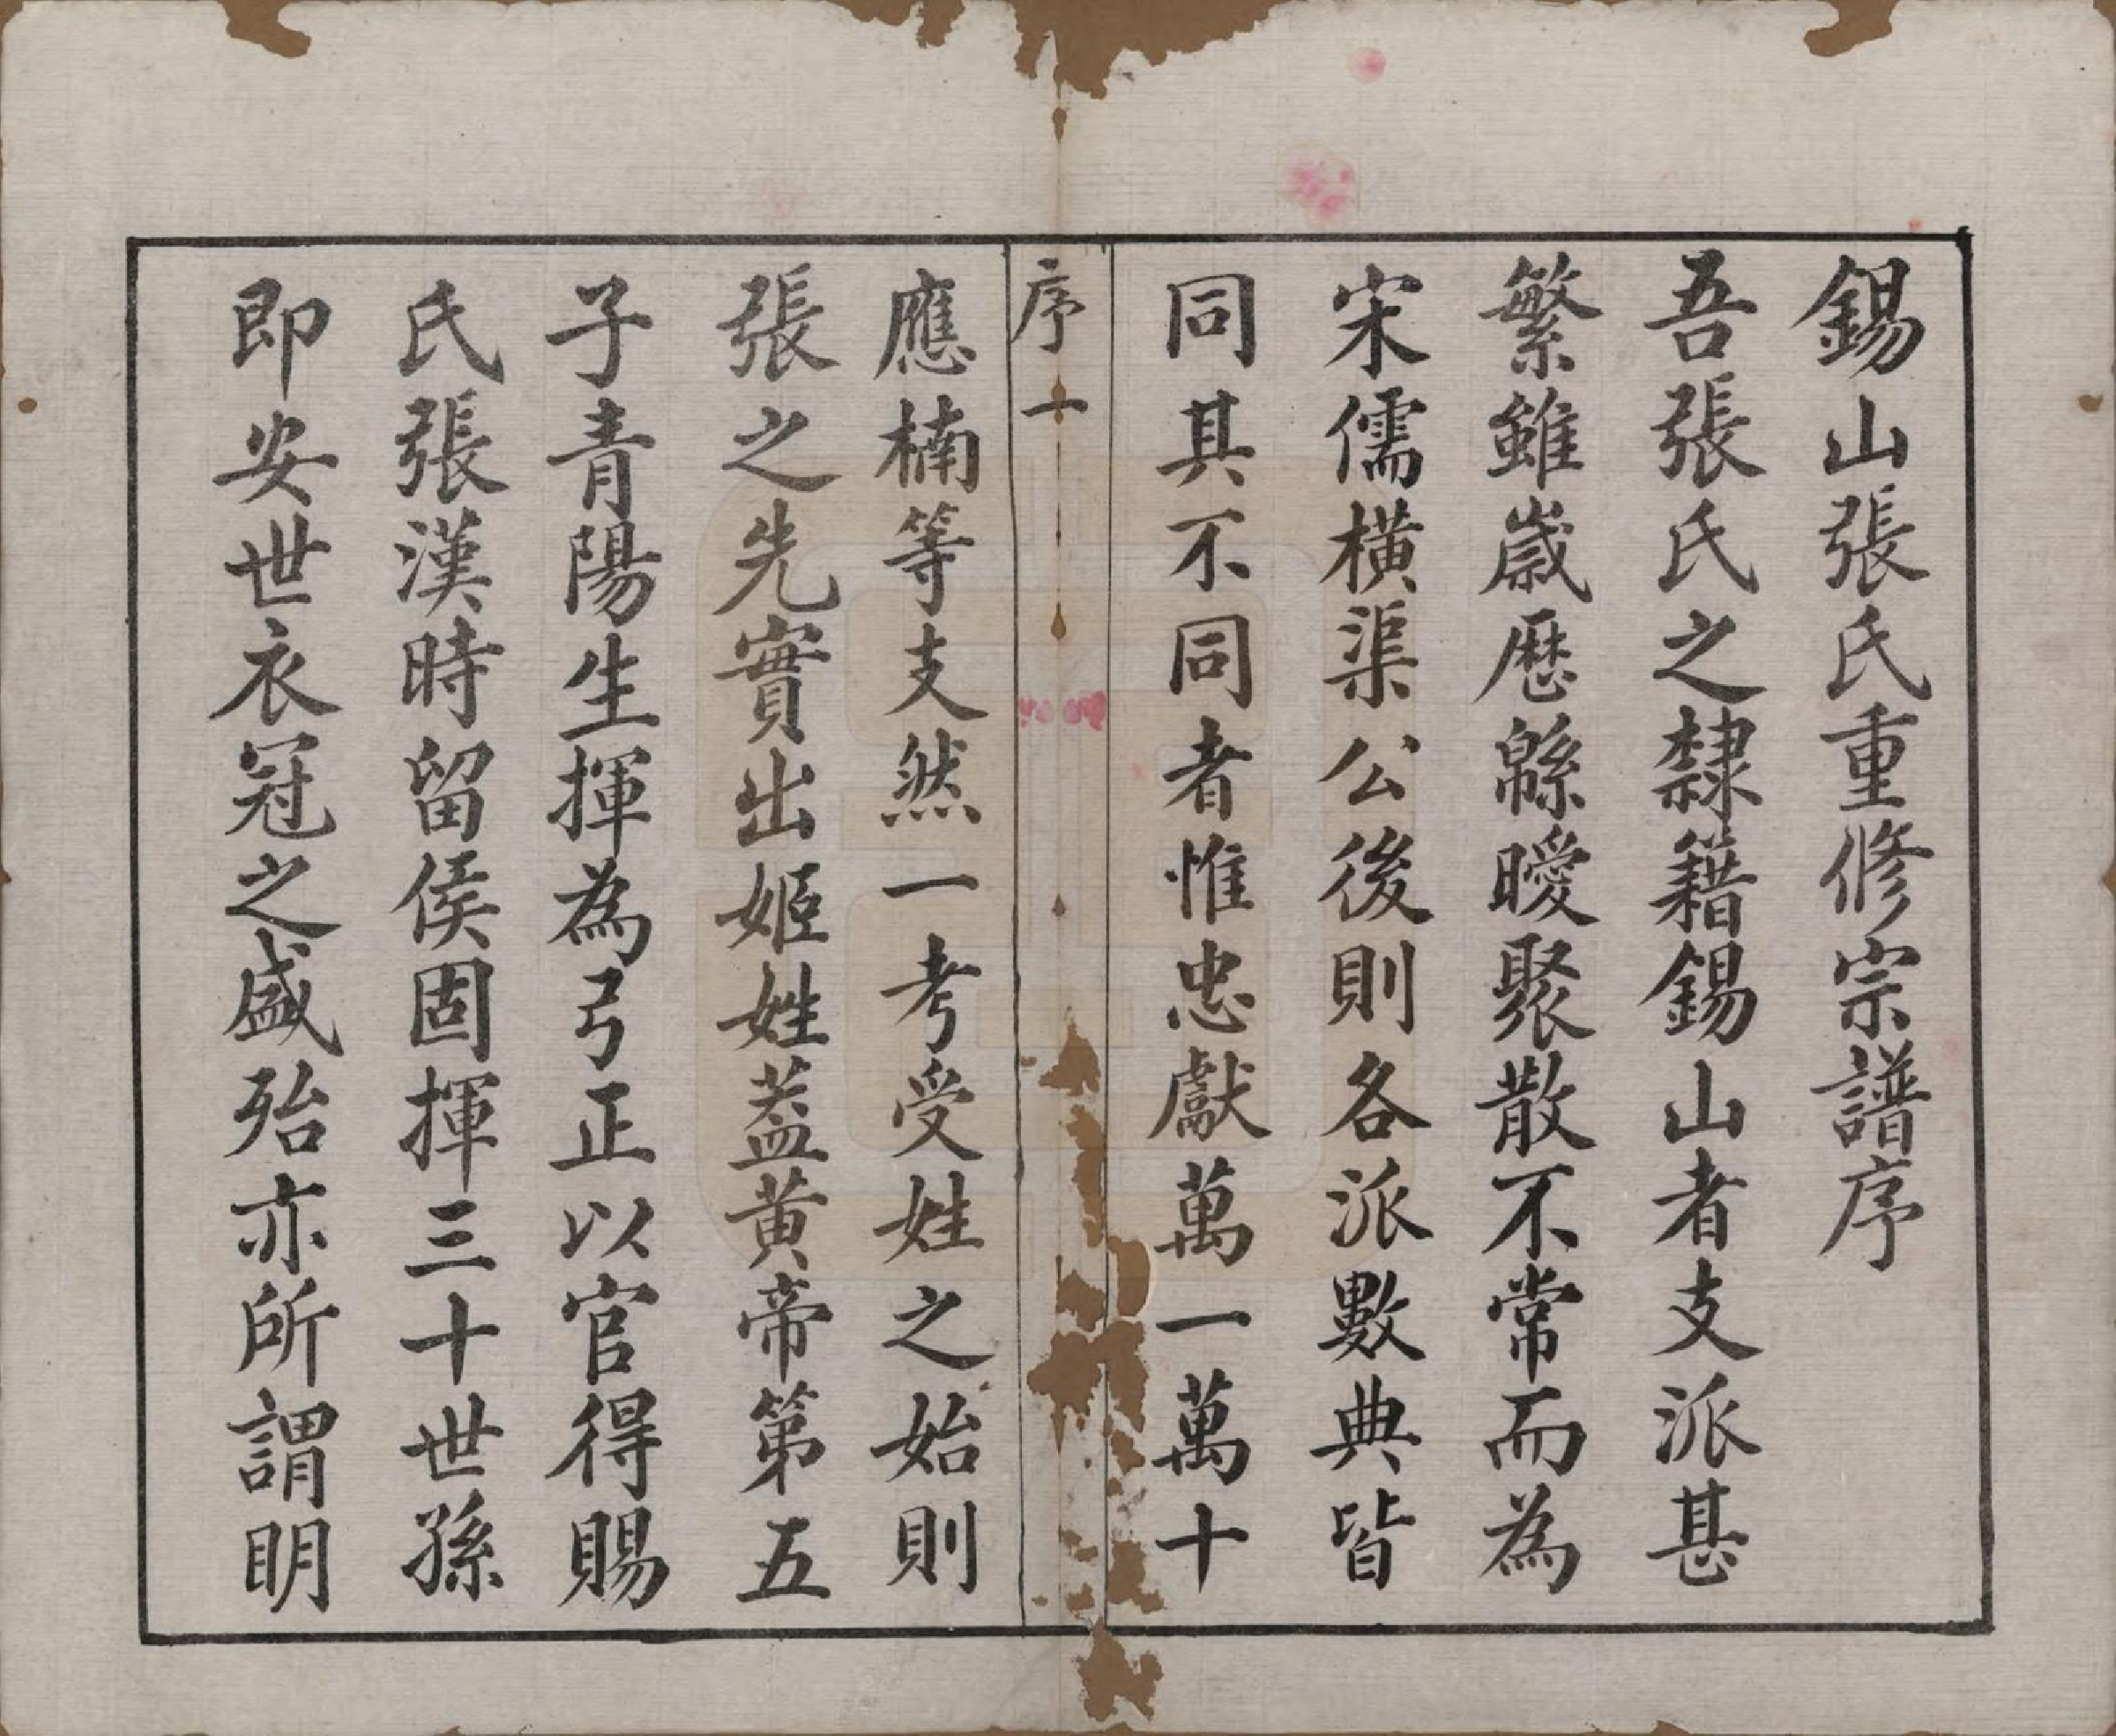 錫山張氏重修宗譜序
吾張氏之隸籍錫山者支派甚
繁雖嵗歷緜曖聚散不常而為
宋儒橫渠公後則各派數典皆
同其不同者惟忠獻萬一萬十
序 一
應楠等支然一考受姓之始則
張之先實出姬姓葢黄帝第五
子青陽生揮為弓正以官得賜
氏張漢時留侯固揮三十世孫
即安世衣冠之盛殆亦所謂明